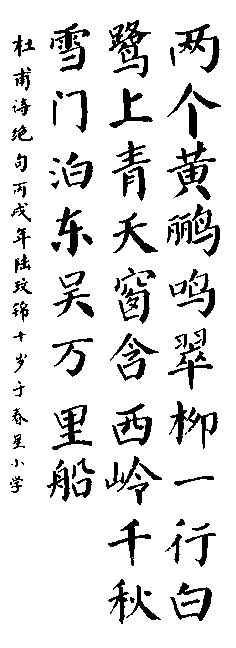 两个黄鹂鸣翠柳一行白
鹭上青天窗含西岭千秋
雪门泊东吴万里船
杜甫诗绝句丙戌年陆玟锦十岁于春星小学